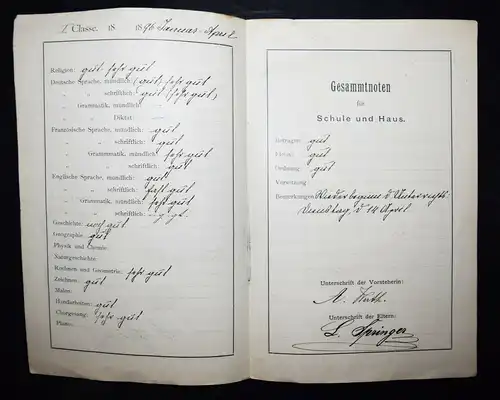 I. Classe. 18 1896 Januar-April
Religion: gut sehr gut
Deutsche Sprache, mündlich: (gut, sehr gut)
„ „ schriftlich: gut (sehr gut)
„ Grammatik, mündlich:
„ „ Diktat:
Französische Sprache, mündlich: gut
„ „ schriftlich: gut
„ Grammatik, mündlich: sehr gut
„ „ schriftlich: gut
Englische Sprache, mündlich: gut
„ „ schriftlich: fast gut
„ Grammatik, mündlich: sehr gut
„ „ schriftlich:
Geschichte: gut
Geographie: gut
Physik und Chemie:
Naturgeschichte:
Rechnen und Geometrie: sehr gut
Zeichnen: gut
Malen:
Handarbeiten: gut
Chorgesang: sehr gut
Piano:
Gesammtnoten
für
Schule und Haus.
Betragen: gut
Fleiss: gut
Ordnung: gut
Versetzung
Bemerkungen: Wiederbeginn d. Unterrichts
Dienstag d 14 April.
Unterschrift der Vorsteherin:
A.
Unterschrift der Eltern:
L. Springer